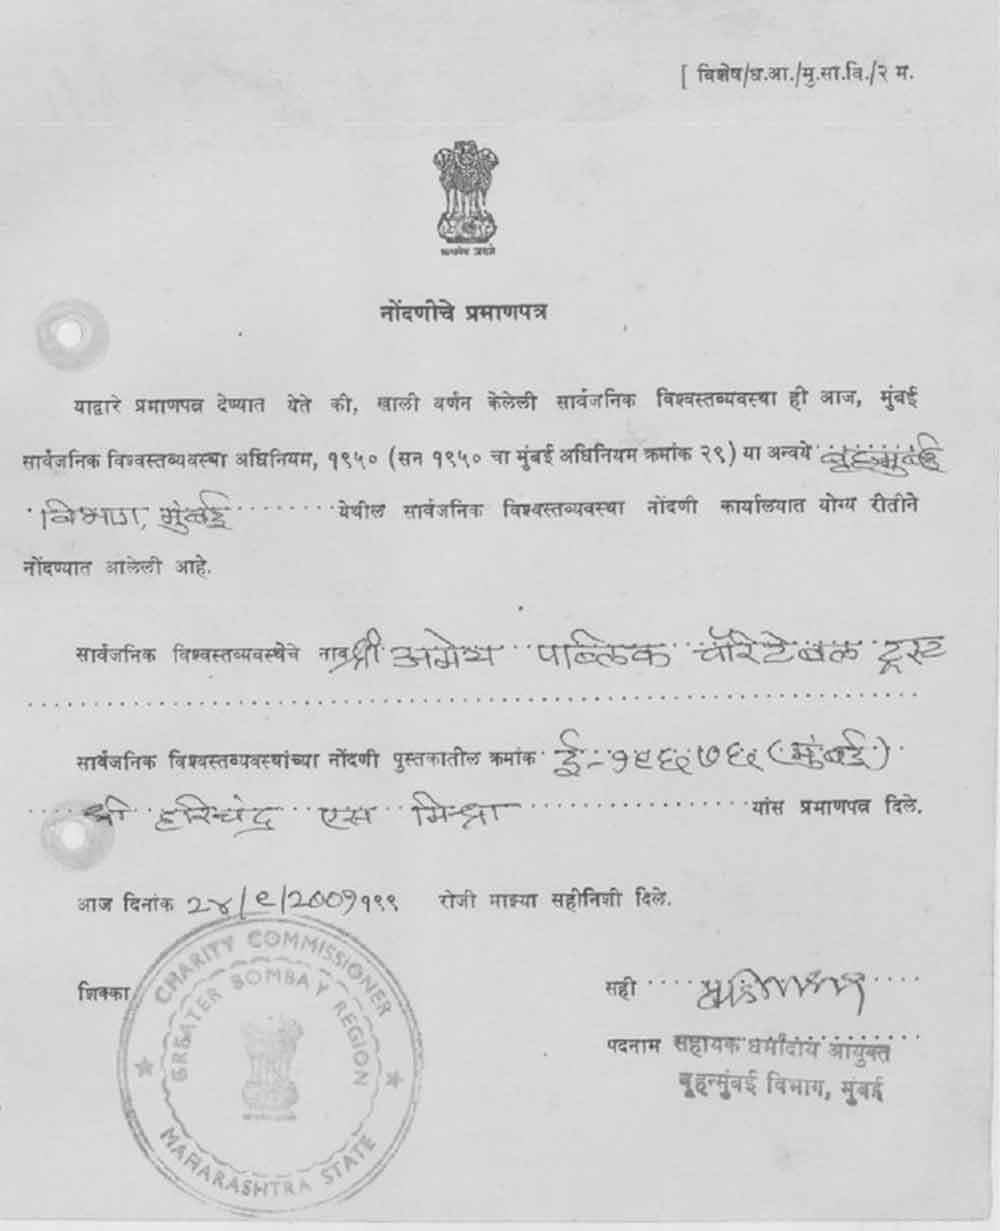 [ विशेष/ध.आ./मु.सा.वि./२ म.
सत्यमेव जयते
नोंदणीचे प्रमाणपत्र
याद्वारे प्रमाणपत्र देण्यात येते की, खाली वर्णन केलेली सार्वजनिक विश्वस्तव्यवस्था ही आज, मुंबई
सार्वजनिक विश्वस्तव्यवस्था अधिनियम, १९५० (सन १९५० चा मुंबई अधिनियम क्रमांक २९) या अन्वये बृहन्मुंबई
विभाग, मुंबई येथील सार्वजनिक विश्वस्तव्यवस्था नोंदणी कार्यालयात योग्य रीतीने
नोंदण्यात आलेली आहे.
सार्वजनिक विश्वस्तव्यवस्थेचे नाव श्री पब्लिक चॅरिटेबल ट्रस्ट
सार्वजनिक विश्वस्तव्यवस्थांच्या नोंदणी पुस्तकातील क्रमांक ई-१९६७६ (मुंबई)
श्री हरिचंद्र एस मिश्रा यांस प्रमाणपत्र दिले.
आज दिनांक २४/९/2009१९९ रोजी माझ्या सहीनिशी दिले.
शिक्का
सही
पदनाम सहायक धर्मादाय आयुक्त
बृहन्मुंबई विभाग, मुंबई
CHARITY COMMISSIONER
GREATER BOMBAY REGION
MAHARASHTRA STATE